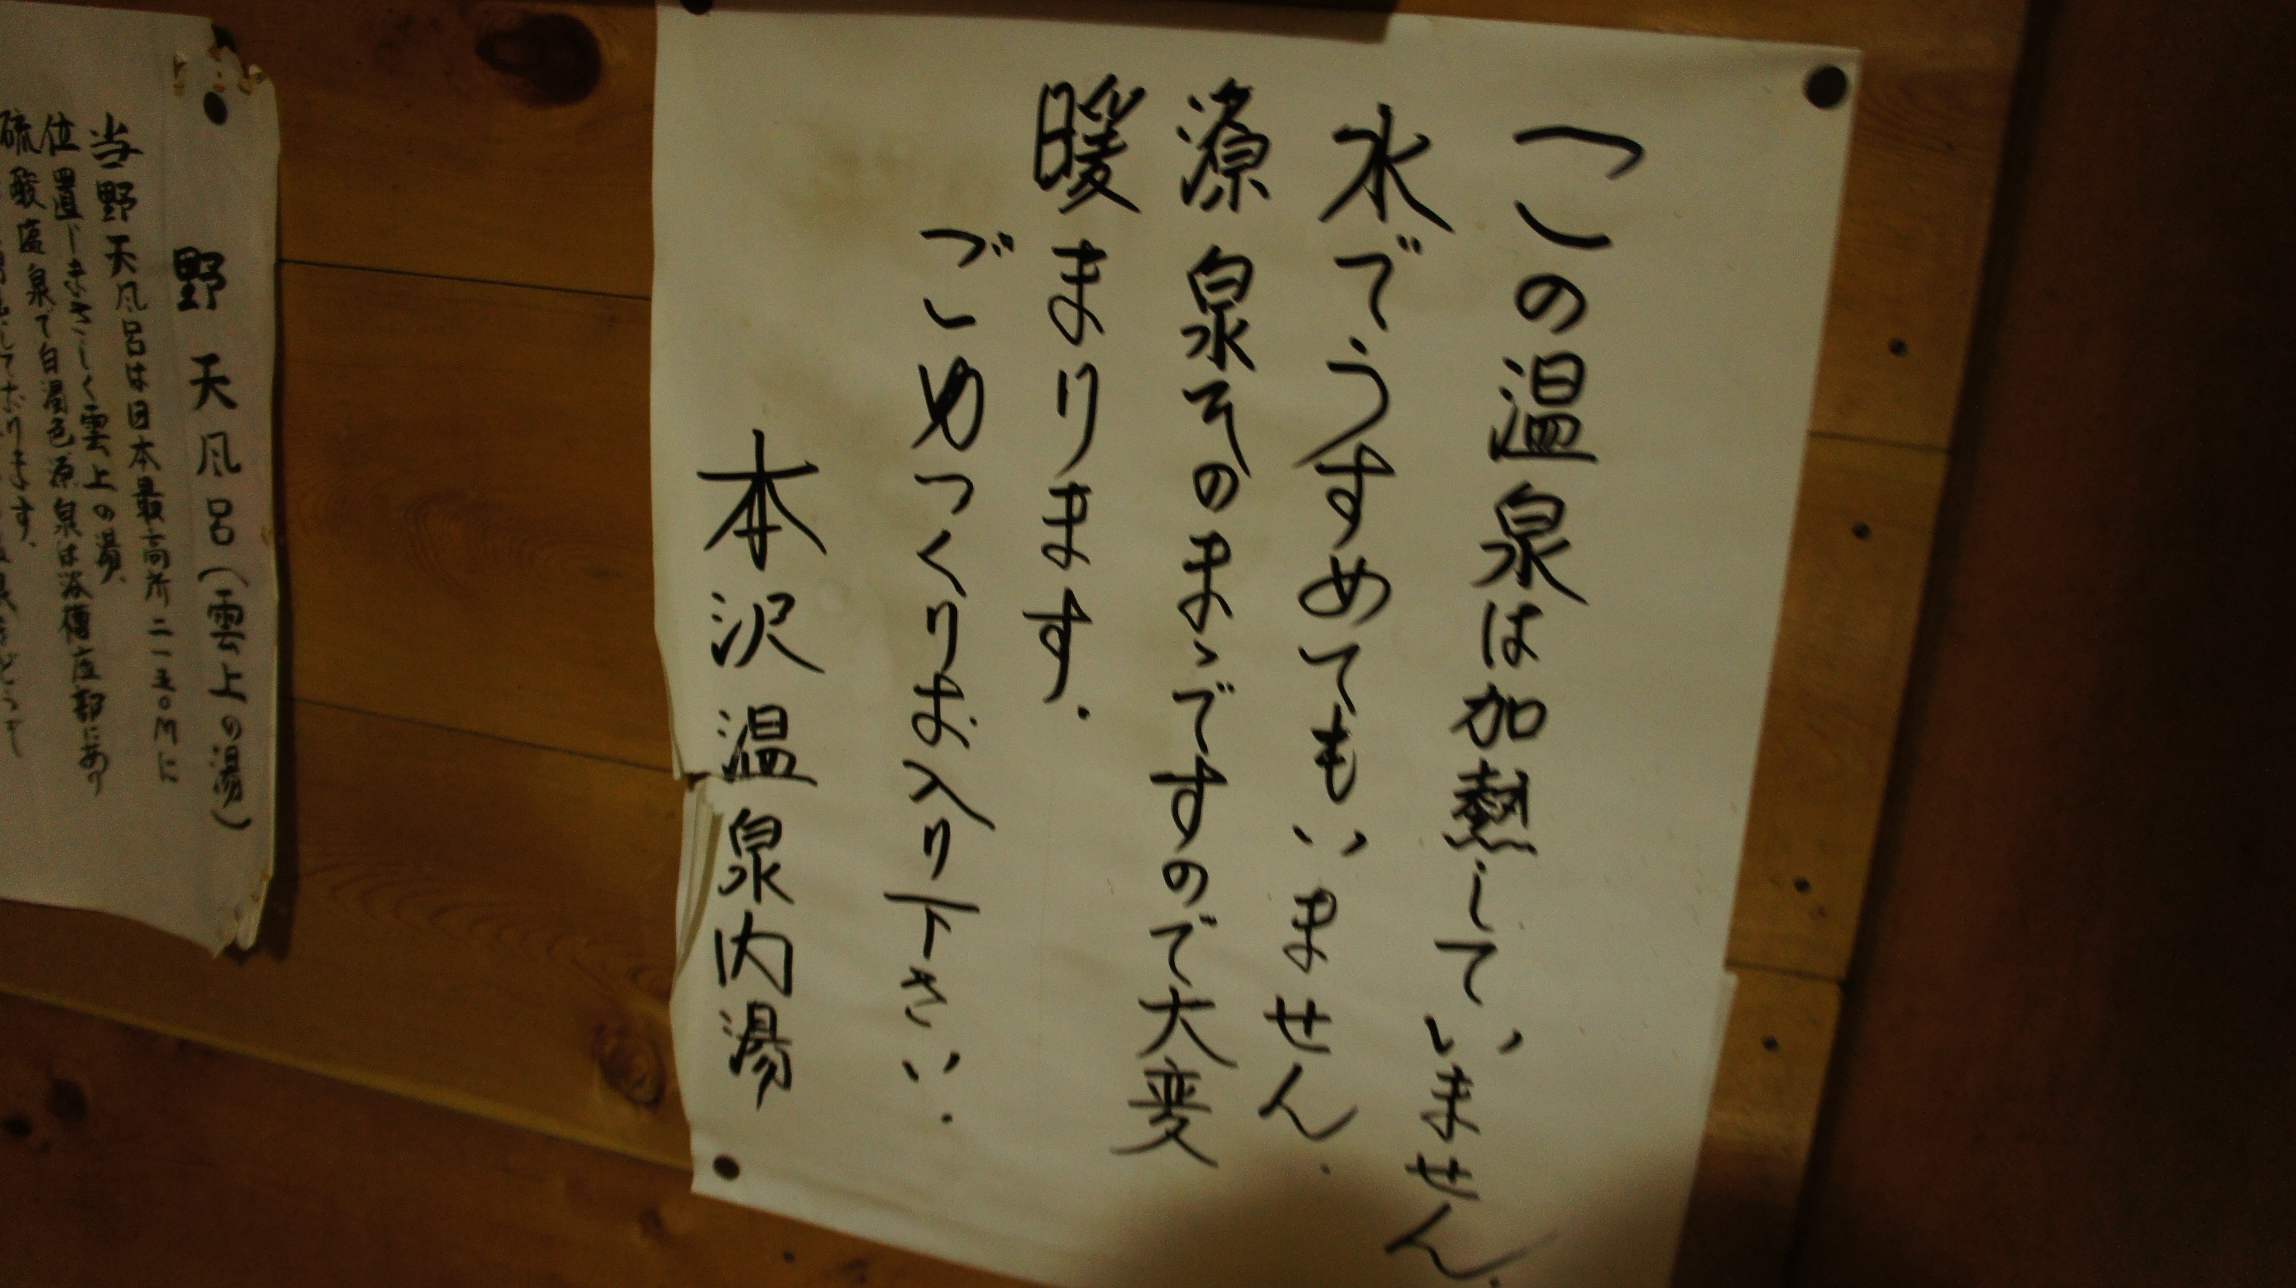 この温泉は加熱していません.
水でうすめてもいません.
源泉そのまゝですので大変
暖まります.
ごゆっくりお入り下さい.
本沢温泉内湯
野天風呂(雲上の湯)
当野天風呂は日本最高所二一五〇Mに
位置しまさしく雲上の湯.
硫酸塩泉で白濁色源泉は浴槽底部にあり
しております.